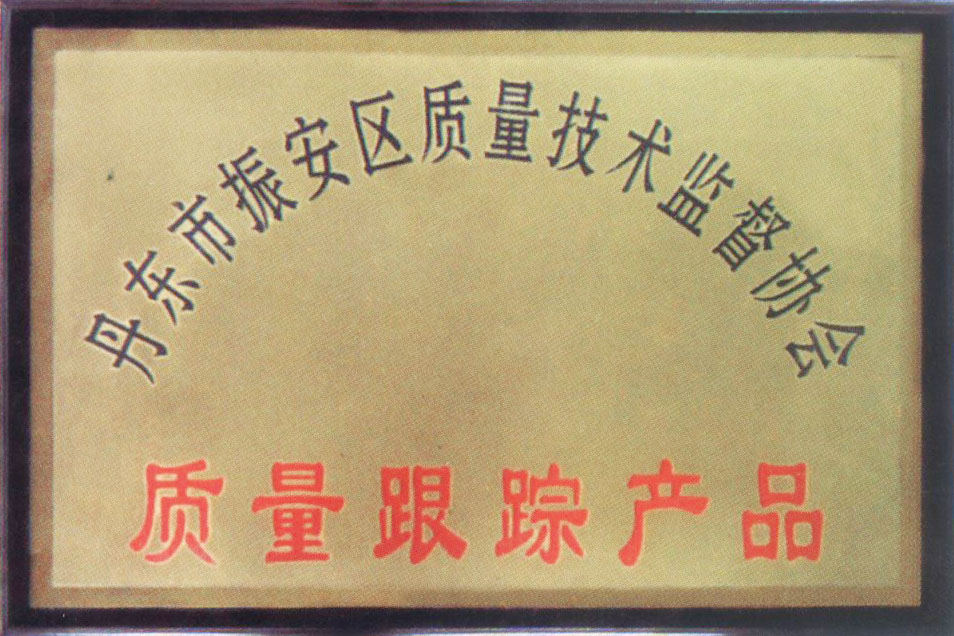 丹东市振安区质量技术监督协会
质量跟踪产品